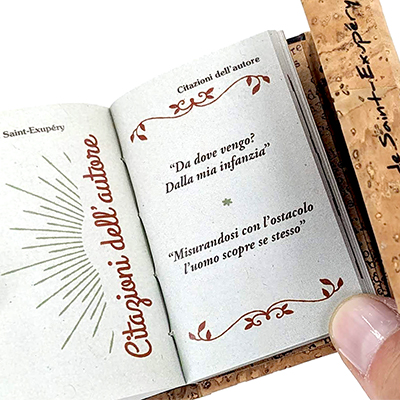 Saint-Exupéry
Citazioni dell'autore
Citazioni dell'autore
“Da dove vengo?
Dalla mia infanzia”
“Misurandosi con l'ostacolo
l'uomo scopre se stesso”
de Saint-Exupéry